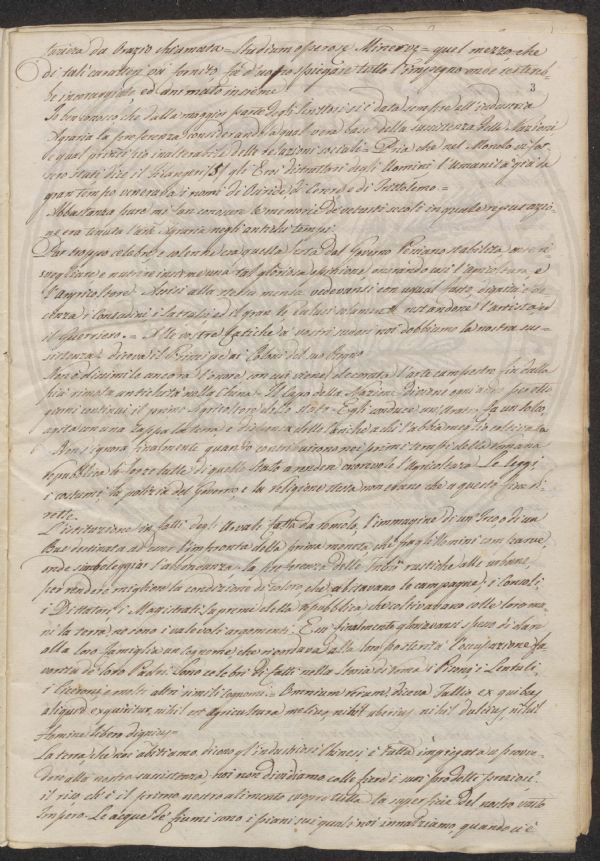 3
da Orazio chiamata = Studium operose Minerve = quel mezzo che
di tali caratteri più fornito fù d'uopo spiegare tutto l'impegno onde
incoraggiato ed animato insieme
Io ben conosco che dalla maggior parte degli Scrittori si è data sempre all'industria
Agraria la preferenza considerandola qual vera base della sussistenza delle Nazioni
e qual inalterabile delle relazioni sociali = Pria che nel Mondo vi fos
sero stati dice il Filangieri gli Eroi distruttori degli Uomini l'Umanità già da
gran tempo venerava i nomi di Osiride, di Cerere e di Trittolemo =
Abbastanza pure mi fan conoscere le memorie de' vetusti secoli in quale reputazio
ne era tenuta l'arte Agraria negli antichi tempi
Pur troppo celebre e solenne era quella festa dal Governo Persiano stabilita onde ri
svegliare e nutrire insieme una tal gloriosa onorando così l'agricoltura, e
l'Agricoltore. Assisi alla stessa mensa vedevansi con ugual fasto, dignità e
i Contadini i Satrapi ed il gran Re restandone l'artista ed
il Guerriero. = Alle vostre fatiche a' vostri sudori noi dobbiamo la nostra sus
sistenza diceva il Principe ai Coloni del suo Regno
Non è dissimile ancora l'onore con cui viene decorata l'arte campestre fin dalla
più rimota antichità nella China. Il Capo della Nazione diviene ogni anno per otto
giorni continui il primo Agricoltore dello stato = Egli conduce un aratro, fa un solco,
agita con una Zappa la terra, e dispensa delle Cariche a chi l'abbia meglio coltivata
Non s'ignora finalmente quanto contribuirono nei primi tempi della Romana
repubblica le forze tutte di quello Stato a render onorevole l'Agricoltura. Le leggi,
i costumi, la polizia del Governo, e la religione stessa non erano che a questo fine di
rette
L'istituzione in fatti degli Arvali fatta da Romolo, l'immagine di un Irco o di un
Bue destinata ad esser l'impronta della prima moneta, che fra gli Uomini comparve,
onde simboleggiar l'abbondanza, la preferenza delle Tribù rustiche alle urbane,
per render migliore la condizione di coloro, che abitavano le campagne, i Consoli,
i Dittatori, i Magistrati supremi della repubblica che coltivavano colle loro ma
ni la terra, ne sono i valevoli argomenti. Essi finalmente gloriavansi spesso di dare
alla loro famiglia un cognome che ricordava alla lor posterità l'occupazione fa
vorita de' loro Padri. Sono celebri di fatti nella Storia di Roma i Pisoni, i Lentuli,
i Ciceroni e molti altri simili cognomi = Omnium rerum, diceva Tullio ex quibus
aliquid exquiritur, nihil est agricultura melius, nihil uberius nihil dulcius, nihil
Homine libero dignius =
La terra, che noi abitiamo, dicono gl'industriosi Chinesi, è tutta impiegata a provve
dere alla nostra sussistenza, noi non dividiamo colle fiere i suoi prodotti preziosi,
il riso, ch'è il primo nostro alimento copre tutta la superficie del nostro vasto
Impero. Le acque de' fiumi sono i piani sui quali noi innalziamo, quando ci è